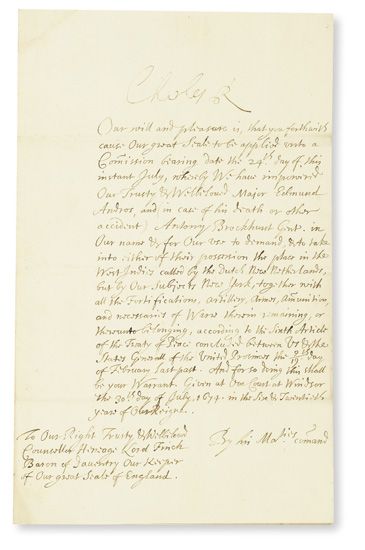 Charles R
Our will and pleasure is, that you forthwith
cause Our great Seale to be applied unto a
Comission bearing date the 24th day of this
instant July, whereby We have impowered
Our Trusty & Wellbeloved Major Edmund
Andros, and, in case of his death or other
accident) Antony Brockhurst Gent. in
Our name & for Our use to demand, & to take
into either of their possession the place in the
West Indies called by the Dutch New Netherlands,
but by Our Subjects New York, together with
all the Fortifications, artillery, Armes, Amunition,
and necessaries of Warre therein remaining, or
thereunto belonging, according to the Sixth Article
of the Treaty of Peace concluded between Us & the
States Generall of the United Provinces the day
of February last past. And for so doing this shall
be your Warrant. Given at Our Court at Windsor
the 30th day of July, 1674. in the Six & Twentieth
yeare of Our Reigne.
By his Maties comand
To Our Right Trusty & Wellbeloved
Councellor Heneage Lord Finch
Baron of Daventry Our Keeper
of Our great Seale of England.